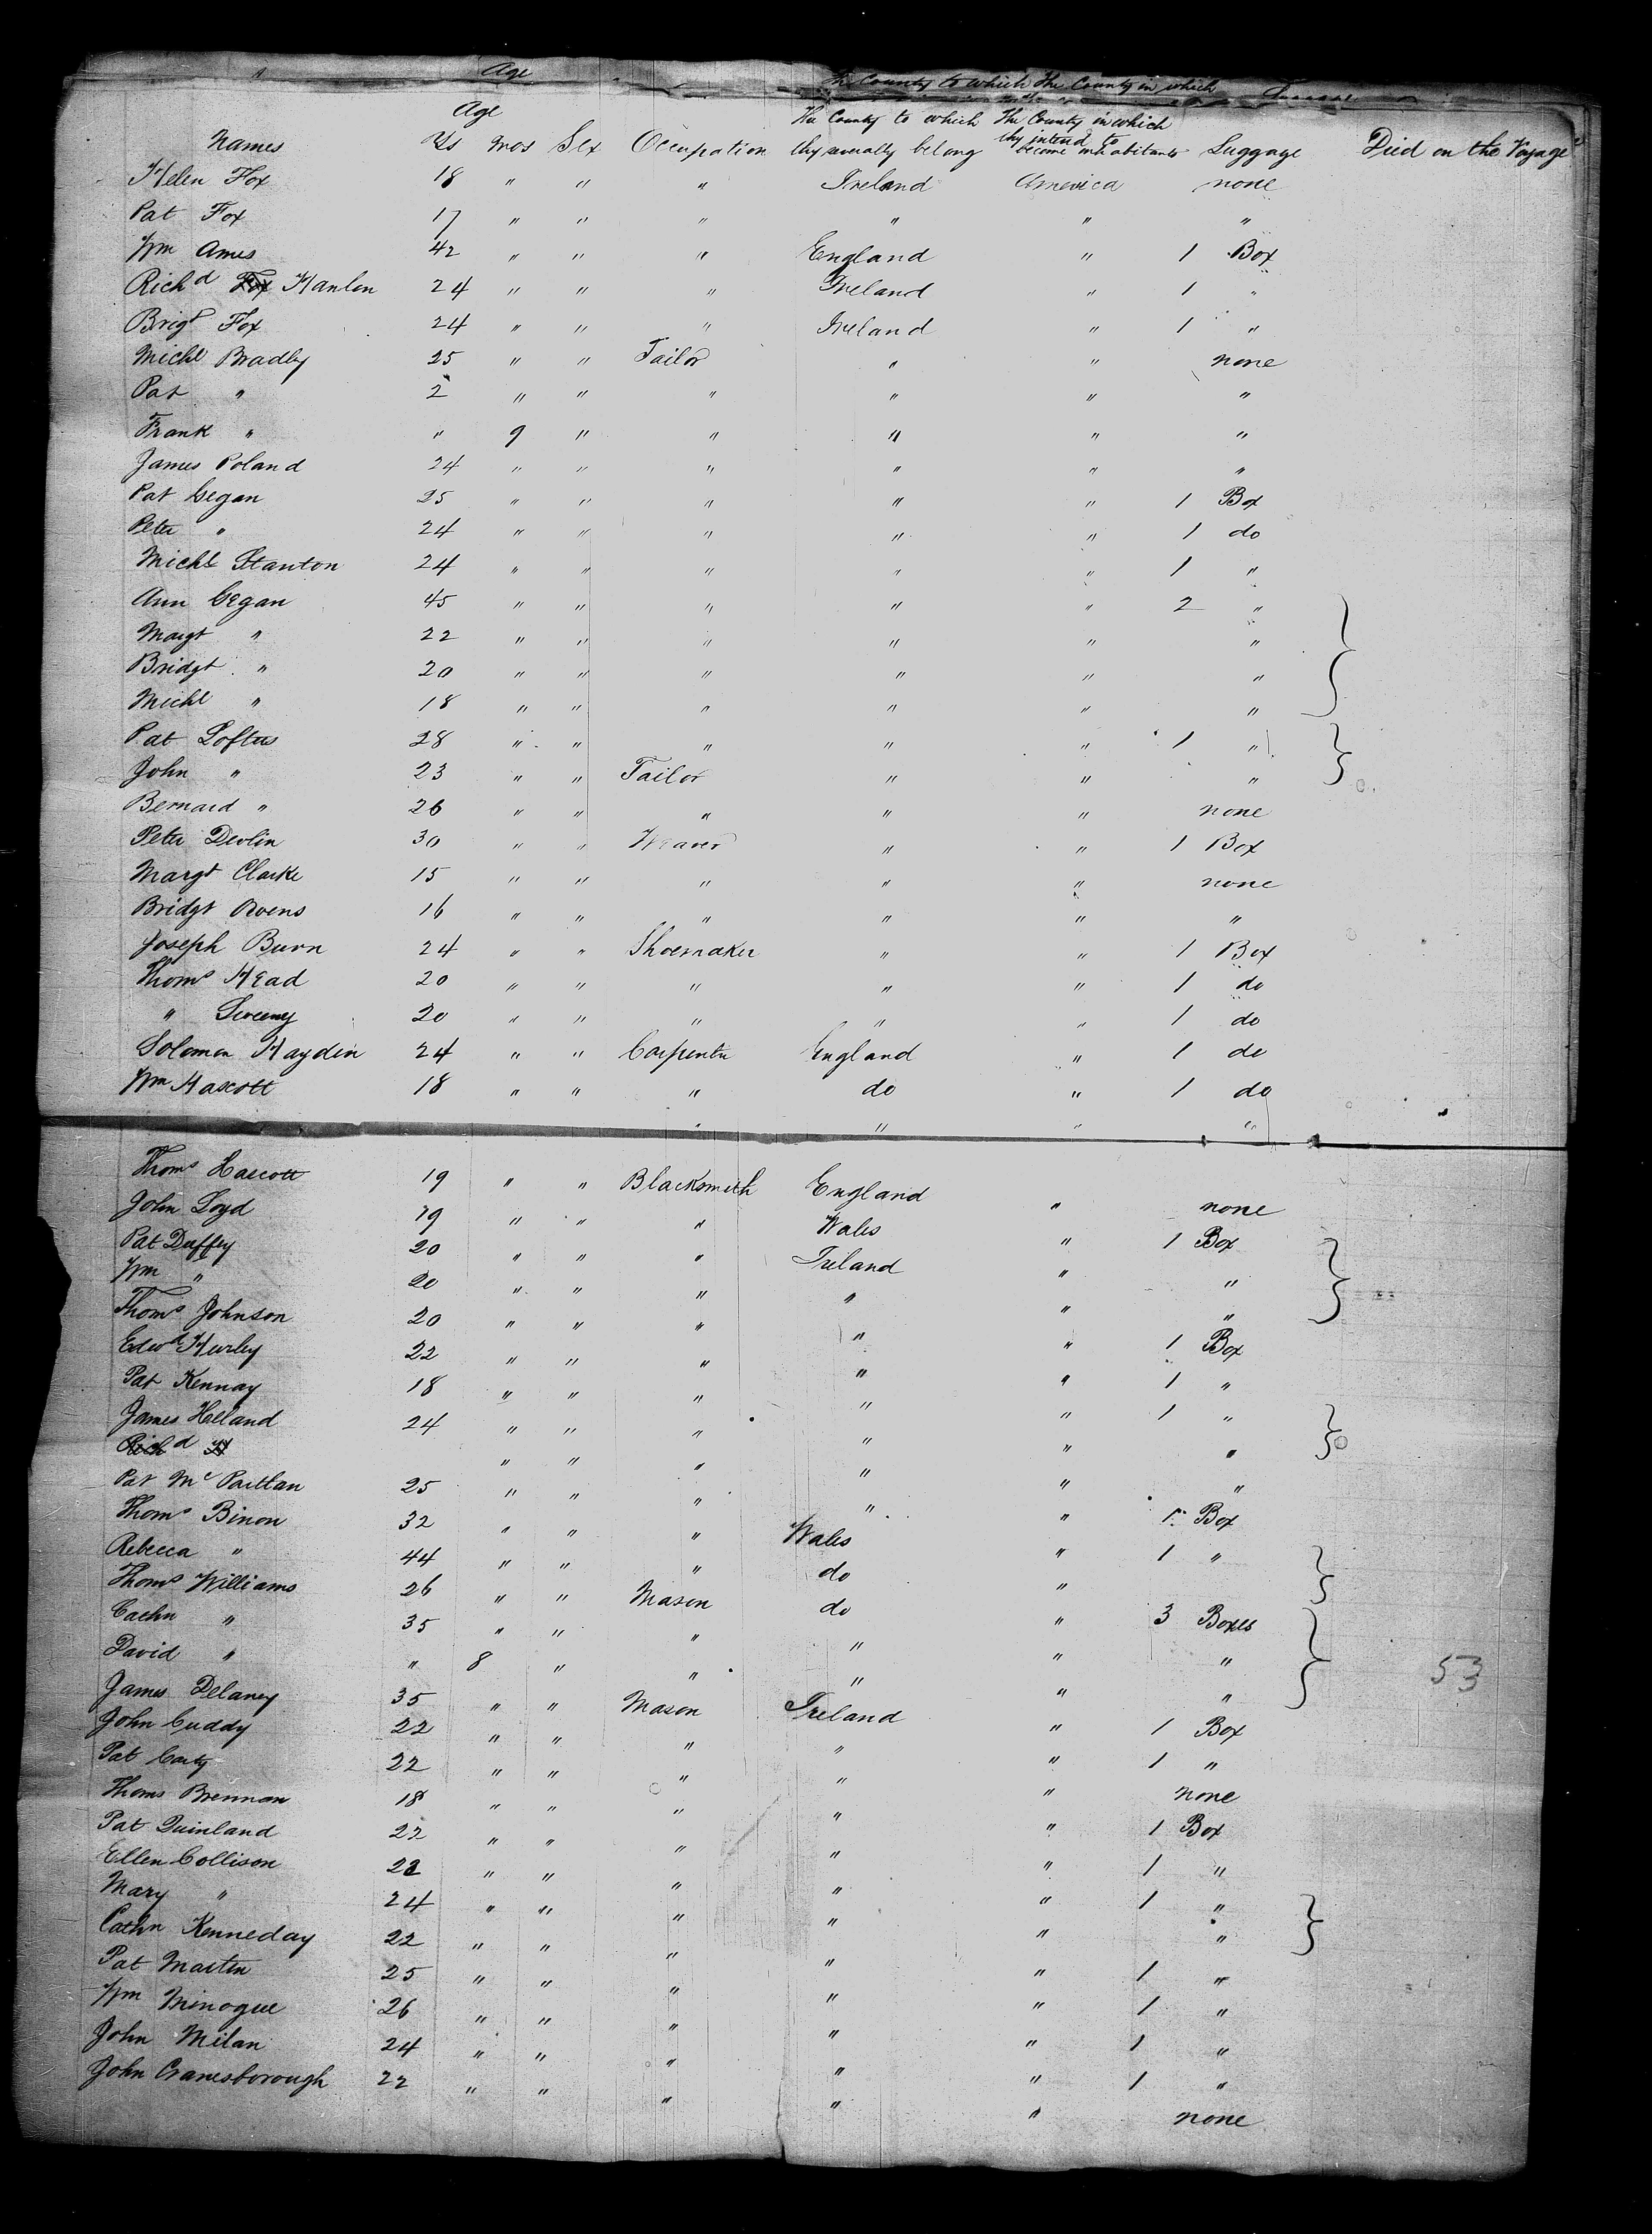 Age
The County to which The County in which
Age
The County to which The County in which
Names Yrs Mos Sex Occupation they usually belong they intend to become inhabitants Luggage Died on the Voyage
Helen Fox 18 " " " Ireland America none
Pat Fox 17 " " " " " "
Wm Ames 42 " " " England " 1 Box
Richd Fox Hanlon 24 " " " Ireland " 1 "
Brigt Fox 24 " " " Ireland " 1 "
Michl Bradly 25 " " Tailor " " none
Pat " 2 " " " " " "
Frank " " 9 " " " " "
James Poland 24 " " " " " "
Pat Gegan 25 " " " " " 1 Box
Peter " 24 " " " " " 1 do
Michl Stanton 24 " " " " " 1 "
Ann Gegan 45 " " " " " 2 "
Margt " 22 " " " " " "
Bridgt " 20 " " " " " "
Michl " 18 " " " " " "
Pat Loftus 28 " " " " " 1 "
John " 23 " " Tailor " " "
Bernard " 26 " " " " " none
Peter Devlin 30 " " Weaver " " 1 Box
Margt Clarke 15 " " " " " none
Bridgt Owens 16 " " " " " "
Joseph Burn 24 " " Shoemaker " " 1 Box
Thoms Head 20 " " " " " 1 do
" Sweeny 20 " " " " " 1 do
Solomon Haydin 24 " " Carpenter England " 1 do
Wm Hascott 18 " " " do " 1 do
" " " "
Thoms Hascott 19 " " Blacksmith England " none
John Loyd 19 " " " Wales " 1 Box
Pat Duffey 20 " " " Ireland " "
Wm " 20 " " " " " "
Thoms Johnson 20 " " " " " 1 Box
Edwd Hurley 22 " " " " " 1 "
Pat Kennay 18 " " " " " 1 "
James Holland 24 " " " " " "
Richd H " " " " " "
Pat McPartlan 25 " " " " " 1 Box
Thoms Binon 32 " " " Wales " 1 "
Rebecca " 44 " " " do "
Thoms Williams 26 " " Mason do " 3 Boxes
Cathn " 35 " " " " " "
David " " 8 " " " " "
James Delaney 35 " " Mason Ireland " 1 Box
John Cuddy 22 " " " " " 1 "
Pat Carty 22 " " " " " none
Thoms Brennan 18 " " " " " 1 Box
Pat Quinland 22 " " " " " 1 "
Ellen Collison 23 " " " " " 1 "
Mary " 24 " " " " " "
Cathn Kenneday 22 " " " " " 1 "
Pat Martin 25 " " " " " 1 "
Wm Minogue 26 " " " " " 1 "
John Milan 24 " " " " " 1 "
John Cranesborough 22 " " " " " none
53